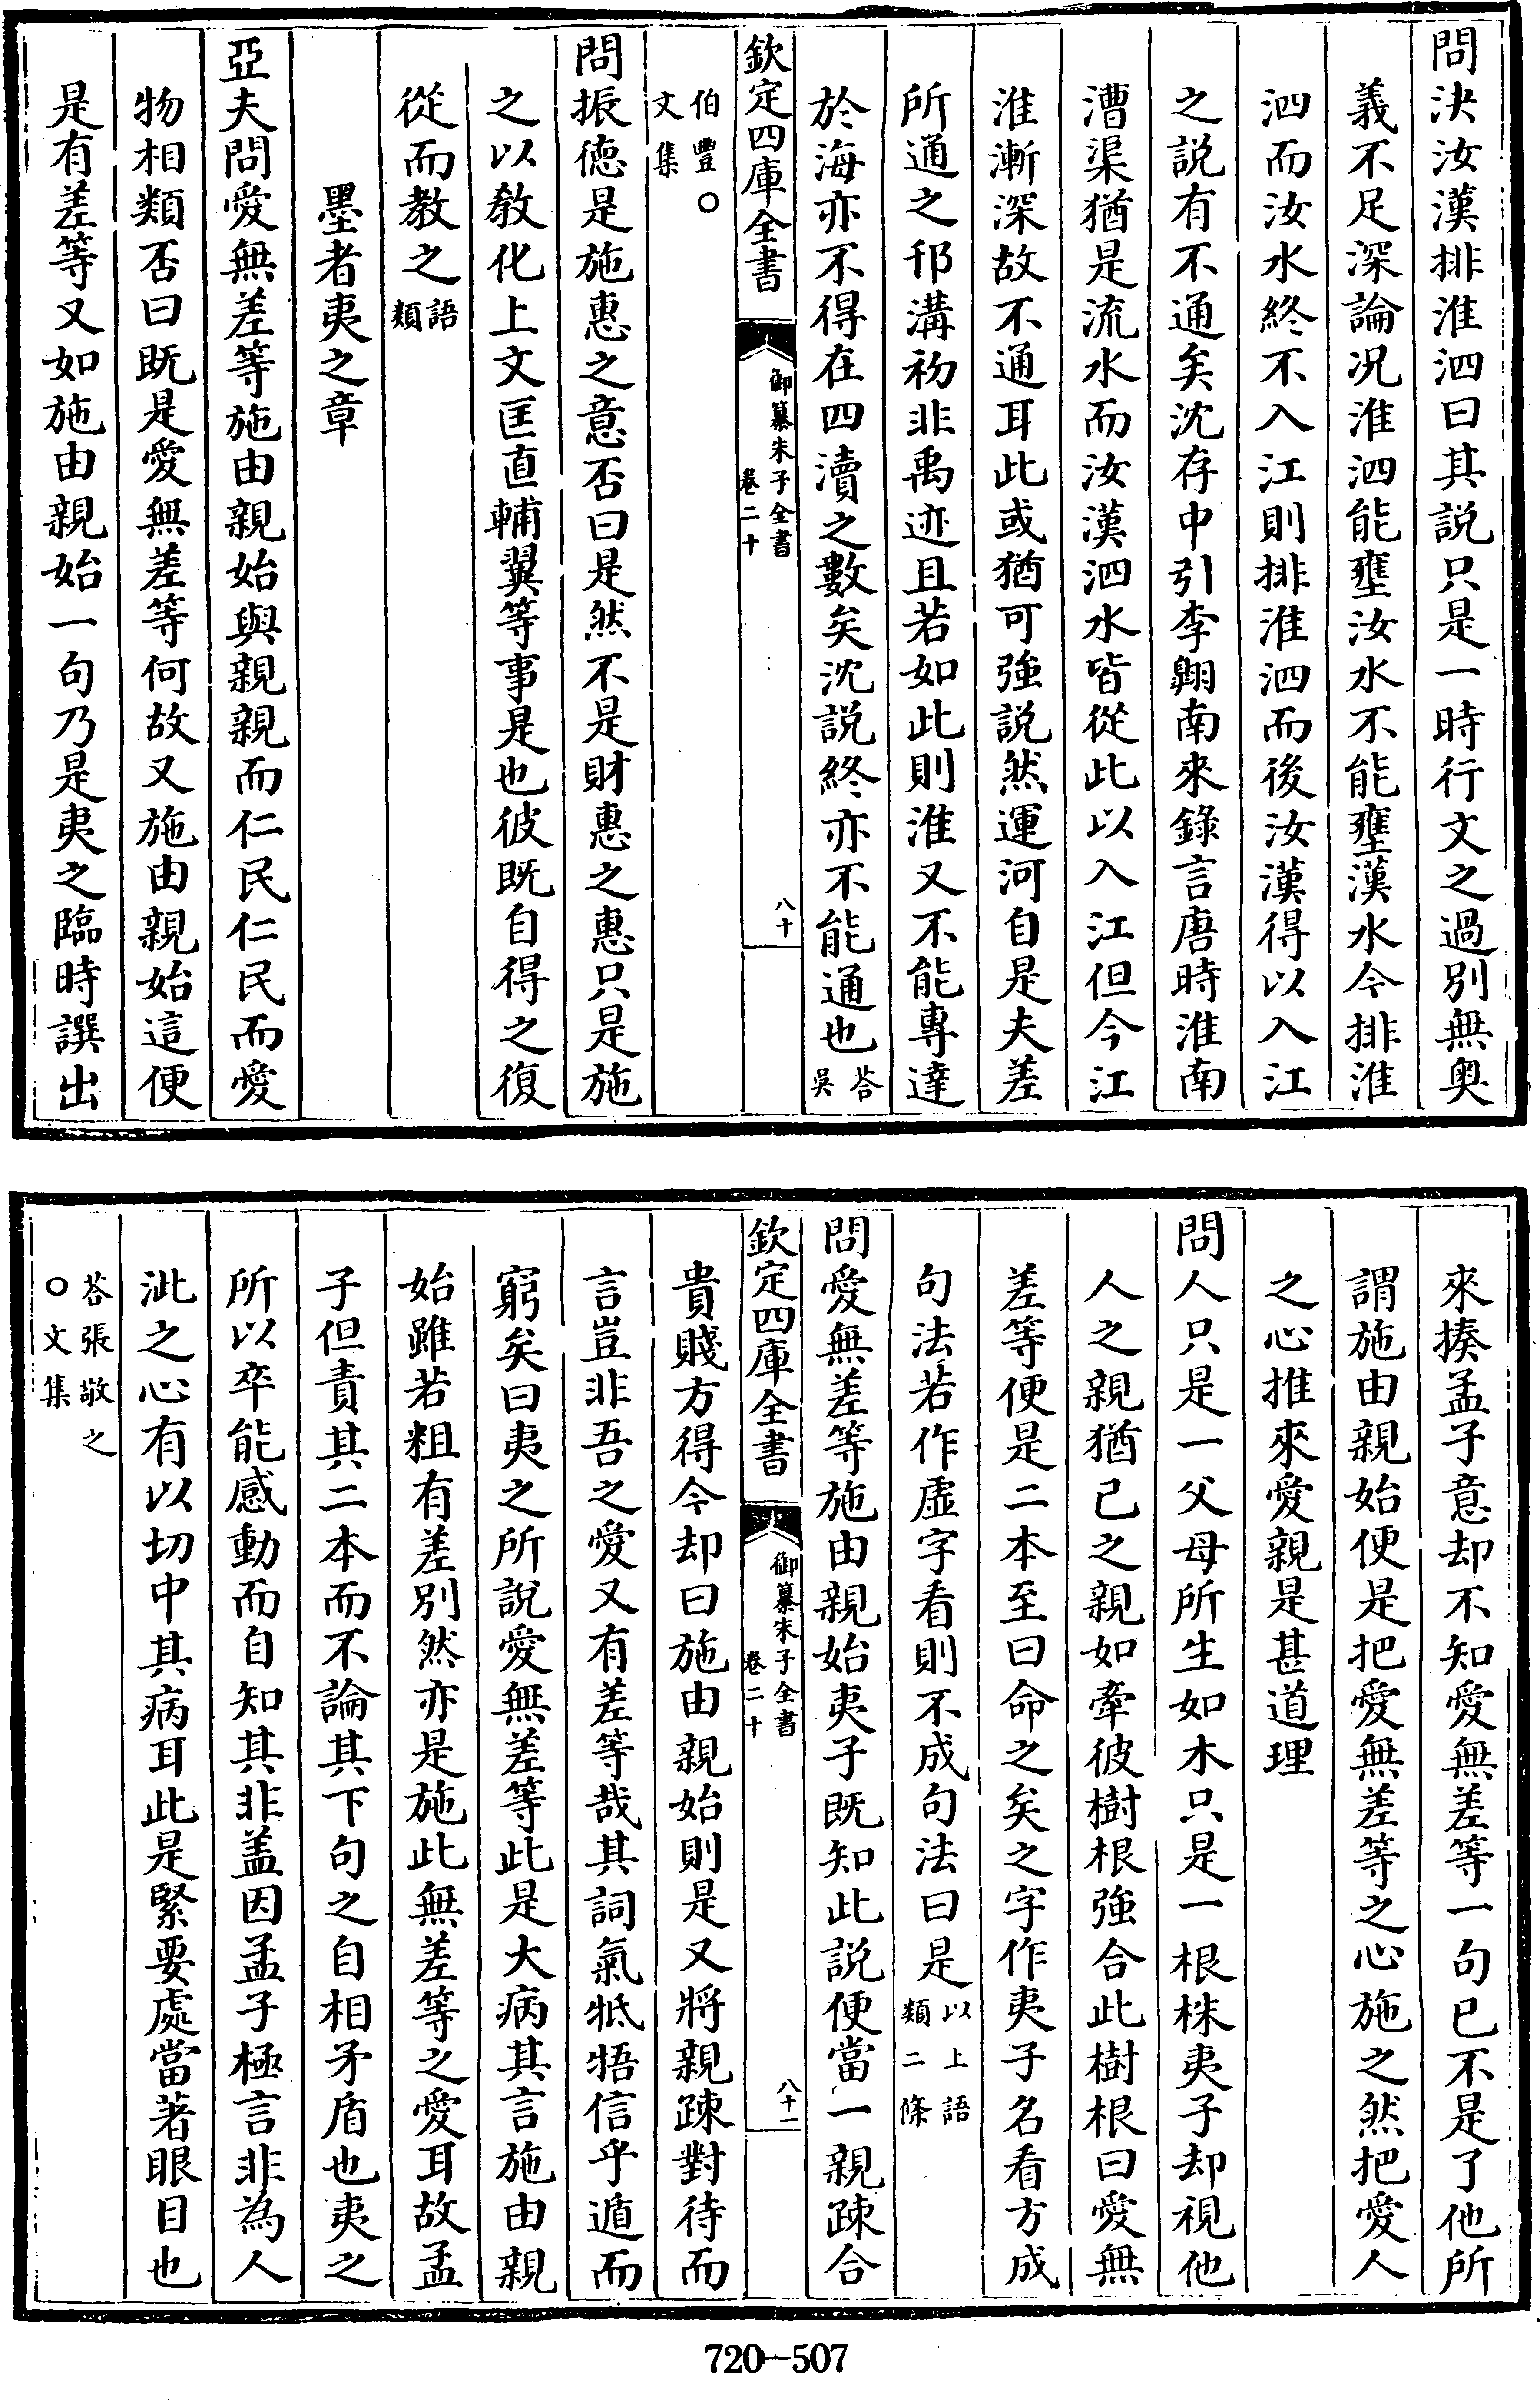 問決汝漢排淮泗曰其説只是一時行文之過別無奥
義不足深論况淮泗能壅汝水不能壅漢水今排淮
泗而汝水終不入江則排淮泗而後汝漢得以入江
之説有不通矣沈存中引李翺南來錄言唐時淮南
漕渠猶是流水而汝漢泗水皆從此以入江但今江
淮漸深故不通耳此或猶可強説然運河自是夫差
所通之邗溝初非禹迹且若如此則淮又不能專達
於海亦不得在四瀆之數矣沈説終亦不能通也荅吳
欽定四庫全書 御纂朱子全書 卷二十 八十
伯豐○文集
問振徳是施惠之意否曰是然不是財惠之惠只是施
之以敎化上文匡直輔翼等事是也彼既自得之復
從而教之語類
墨者夷之章
亞夫問愛無差等施由親始與親親而仁民仁民而愛
物相類否曰既是愛無差等何故又施由親始這便
是有差等又如施由親始一句乃是夷之臨時譔出
來揍孟子意却不知愛無差等一句已不是了他所
謂施由親始便是把愛無差等之心施之然把愛人
之心推來愛親是甚道理
問人只是一父母所生如木只是一根株夷子却視他
人之親猶己之親如牽彼樹根強合此樹根曰愛無
差等便是二本至曰命之矣之字作夷子名看方成
句法若作虚字看則不成句法曰是以上語類二條
問愛無差等施由親始夷子既知此説便當一親疎合
欽定四庫全書 御纂朱子全書 卷二十 八十一
貴賤方得今却曰施由親始則是又將親疎對待而
言豈非吾之愛又有差等哉其詞氣牴牾信乎遁而
窮矣曰夷之所説愛無差等此是大病其言施由親
始雖若粗有差別然亦是施此無差等之愛耳故孟
子但責其二本而不論其下句之自相矛盾也夷之
所以卒能感動而自知其非盖因孟子極言非為人
泚之心有以切中其病耳此是緊要處當著眼目也
荅張敬之○文集
720-507